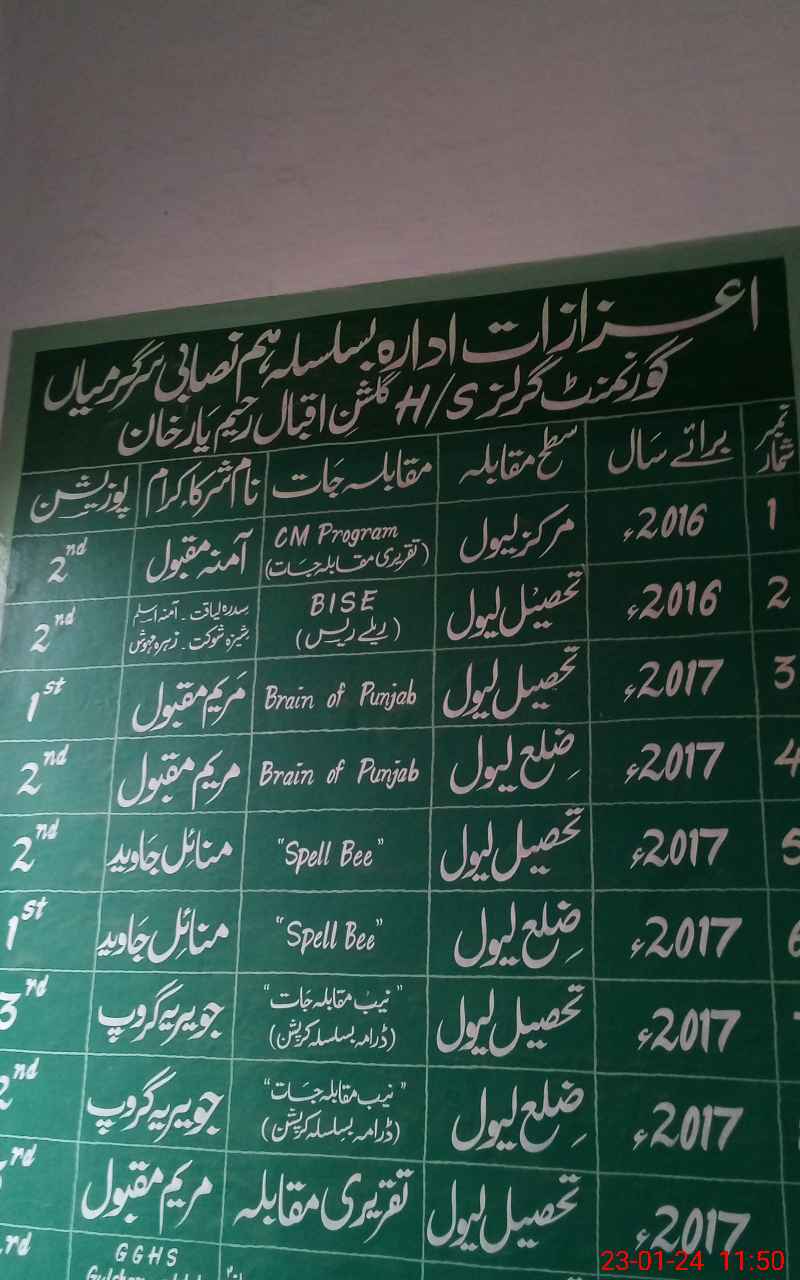 اعزازات ادارہ بسلسلہ ہم نصابی سرگرمیاں
گورنمنٹ گرلز H/S گلشنِ اقبال رحیم یار خان
نمبر شمار برائے سال سطح مقابلہ مقابلہ جات نام شرکاء کرام پوزیشن
1 2016ء مرکز لیول CM Program (تقریری مقابلہ جات) آمنہ مقبول 2nd
2 2016ء تحصیل لیول BISE (ریلے ریس) سدرہ لیاقت ۔ آمنہ اسلم شیزہ شوکت ۔ زہرہ مہوش 2nd
3 2017ء تحصیل لیول Brain of Punjab مریم مقبول 1st
4 2017ء ضلع لیول Brain of Punjab مریم مقبول 2nd
5 2017ء تحصیل لیول "Spell Bee" منائل جاوید 2nd
6 2017ء ضلع لیول "Spell Bee" منائل جاوید 1st
2017ء تحصیل لیول "نیب مقابلہ جات" (ڈرامہ بسلسلہ کرپشن) جویریہ گروپ 3rd
2017ء ضلع لیول "نیب مقابلہ جات" (ڈرامہ بسلسلہ کرپشن) جویریہ گروپ 2nd
2017ء تحصیل لیول تقریری مقابلہ مریم مقبول rd
GGHS rd
23-01-24 11:50